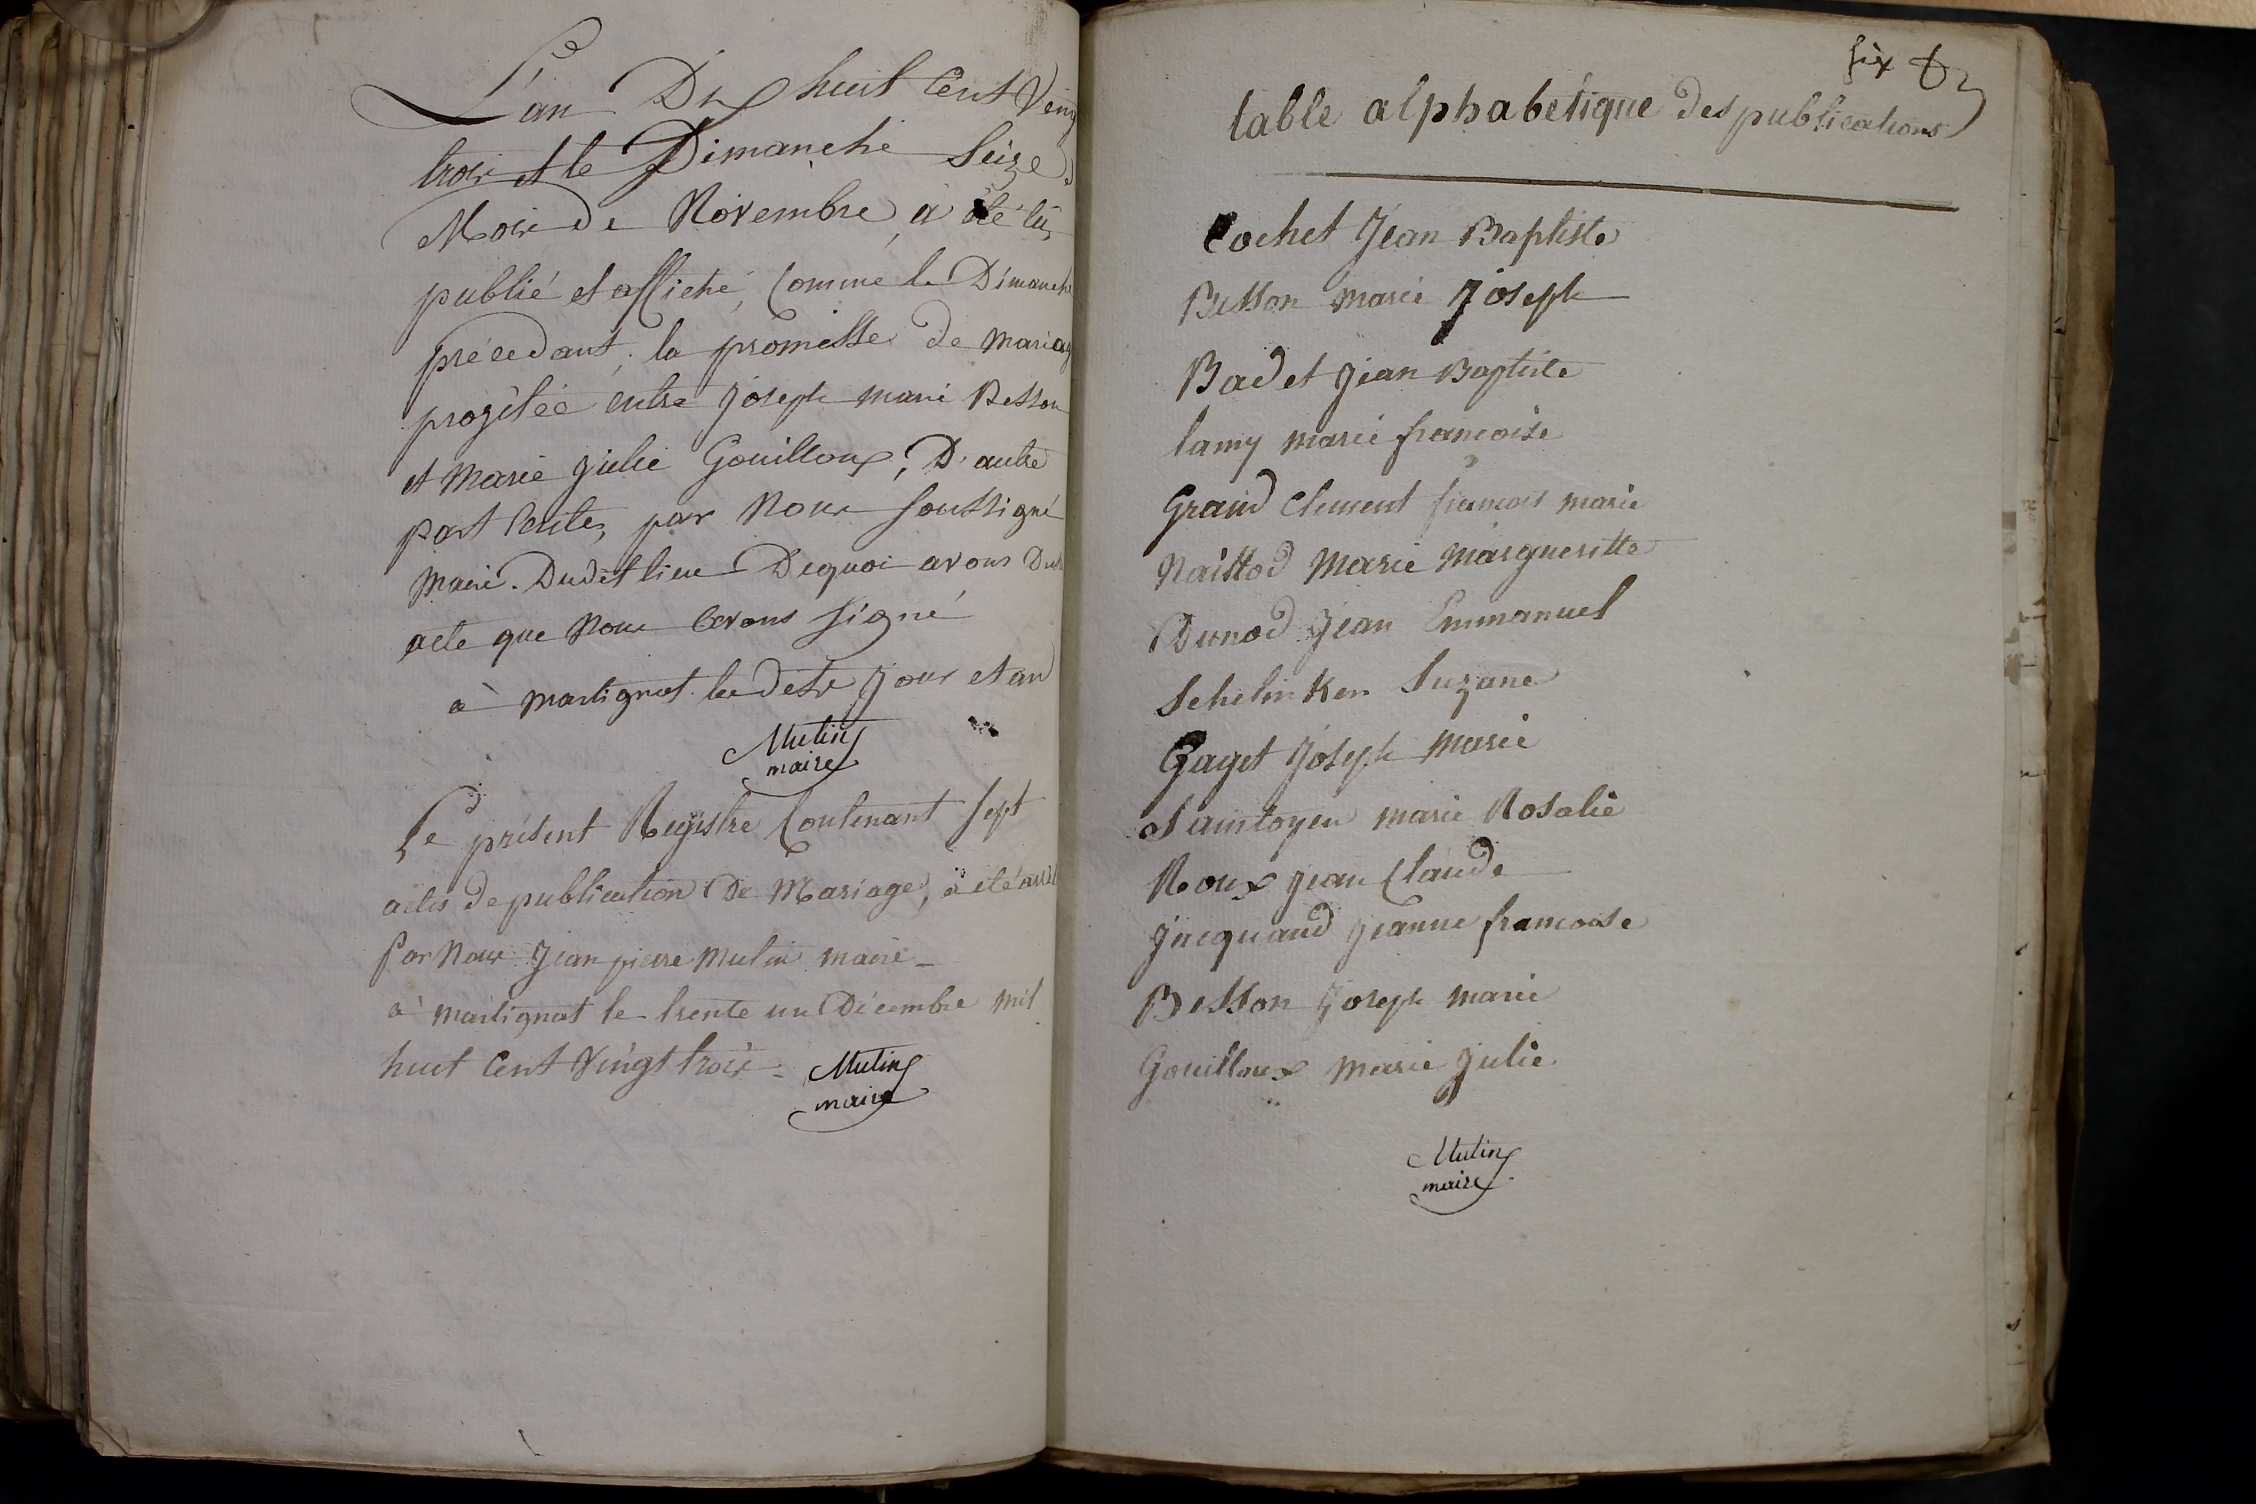 L'an Dix huit Cent Veing
trois et le Dimanche Seize
Mois de Novembre, a été lû,
publié et affiché, Comme le Dimanche
précédant, la promesse de mariag
projétée entre joseph marie Besson
et marie julie Gouilloux, D'autre
part
par Nous Soussigné
maire Dudit lieu Dequoi avons
acte que Nous avons Signé
à martignat les dits jour et an
Mutin
maire
Le présent Registre Contenant Sept
actes de publication De Mariage, à été
par Nous jean pierre Mutin maire
à martignat le trente un Décembre mil
huit Cent Vingt trois.
Mutin
maire
six
table alphabétique des publications
Cochet jean Baptiste
Besson marie joseph
Badet jean Baptiste
lamy marie françoise
Grand Clement françois marie
Naistod Marie Margueritte
Dunod jean Emmanuel
Schelinker Suzane
Gaget joseph marie
Saintoyen marie Rosalie
Roux jean Claude
jacquand jeanne francoise
Besson joseph marie
Gouilloux marie julie
Mutin
maire